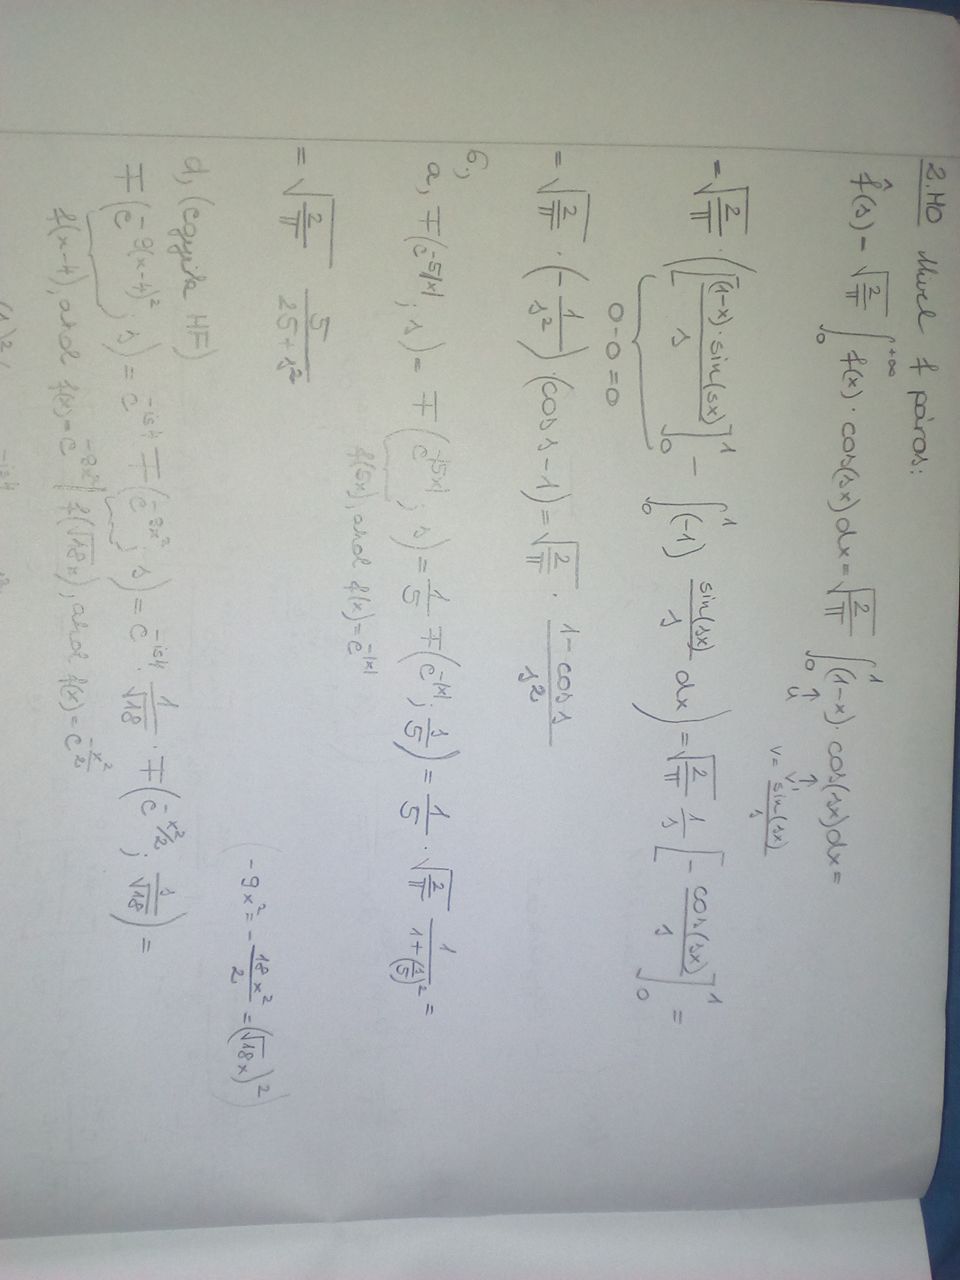 2. MO Mivel f páros:
f̂(s) = √(2/π) ∫₀^{+∞} f(x) · cos(sx) dx = √(2/π) ∫₀¹ (1-x) · cos(sx) dx =
↑ u ↑ v'
v = sin(sx)/s
= √(2/π) · ( [ (1-x) · sin(sx) / s ]₀¹ - ∫₀¹ (-1) sin(sx)/s dx ) = √(2/π) 1/s [ - cos(sx)/s ]₀¹ =
0-0=0
= √(2/π) · (- 1/s²) · (cos s - 1) = √(2/π) · (1 - cos s)/s²
6.,
a, F(e^{-5|x|}; s) = F(e^{-|5x|}; s) = 1/5 F(e^{-|x|}; s/5) = 1/5 · √(2/π) 1/(1+(s/5)²) =
f(5x), ahol f(x) = e^{-|x|}
= √(2/π) 5/(25+s²)
(-9x² = - 18x²/2 = (√18x)²)
d, (egyik HF)
F(e^{-9(x-4)²}; s) = e^{-is4} F(e^{-9x²}; s) = e^{-is4} · 1/√18 · F(e^{-x²/2}; s/√18) =
f(x-4), ahol f(x) = e^{-9x²} | f(√18x), ahol f(x) = e^{-x²/2}